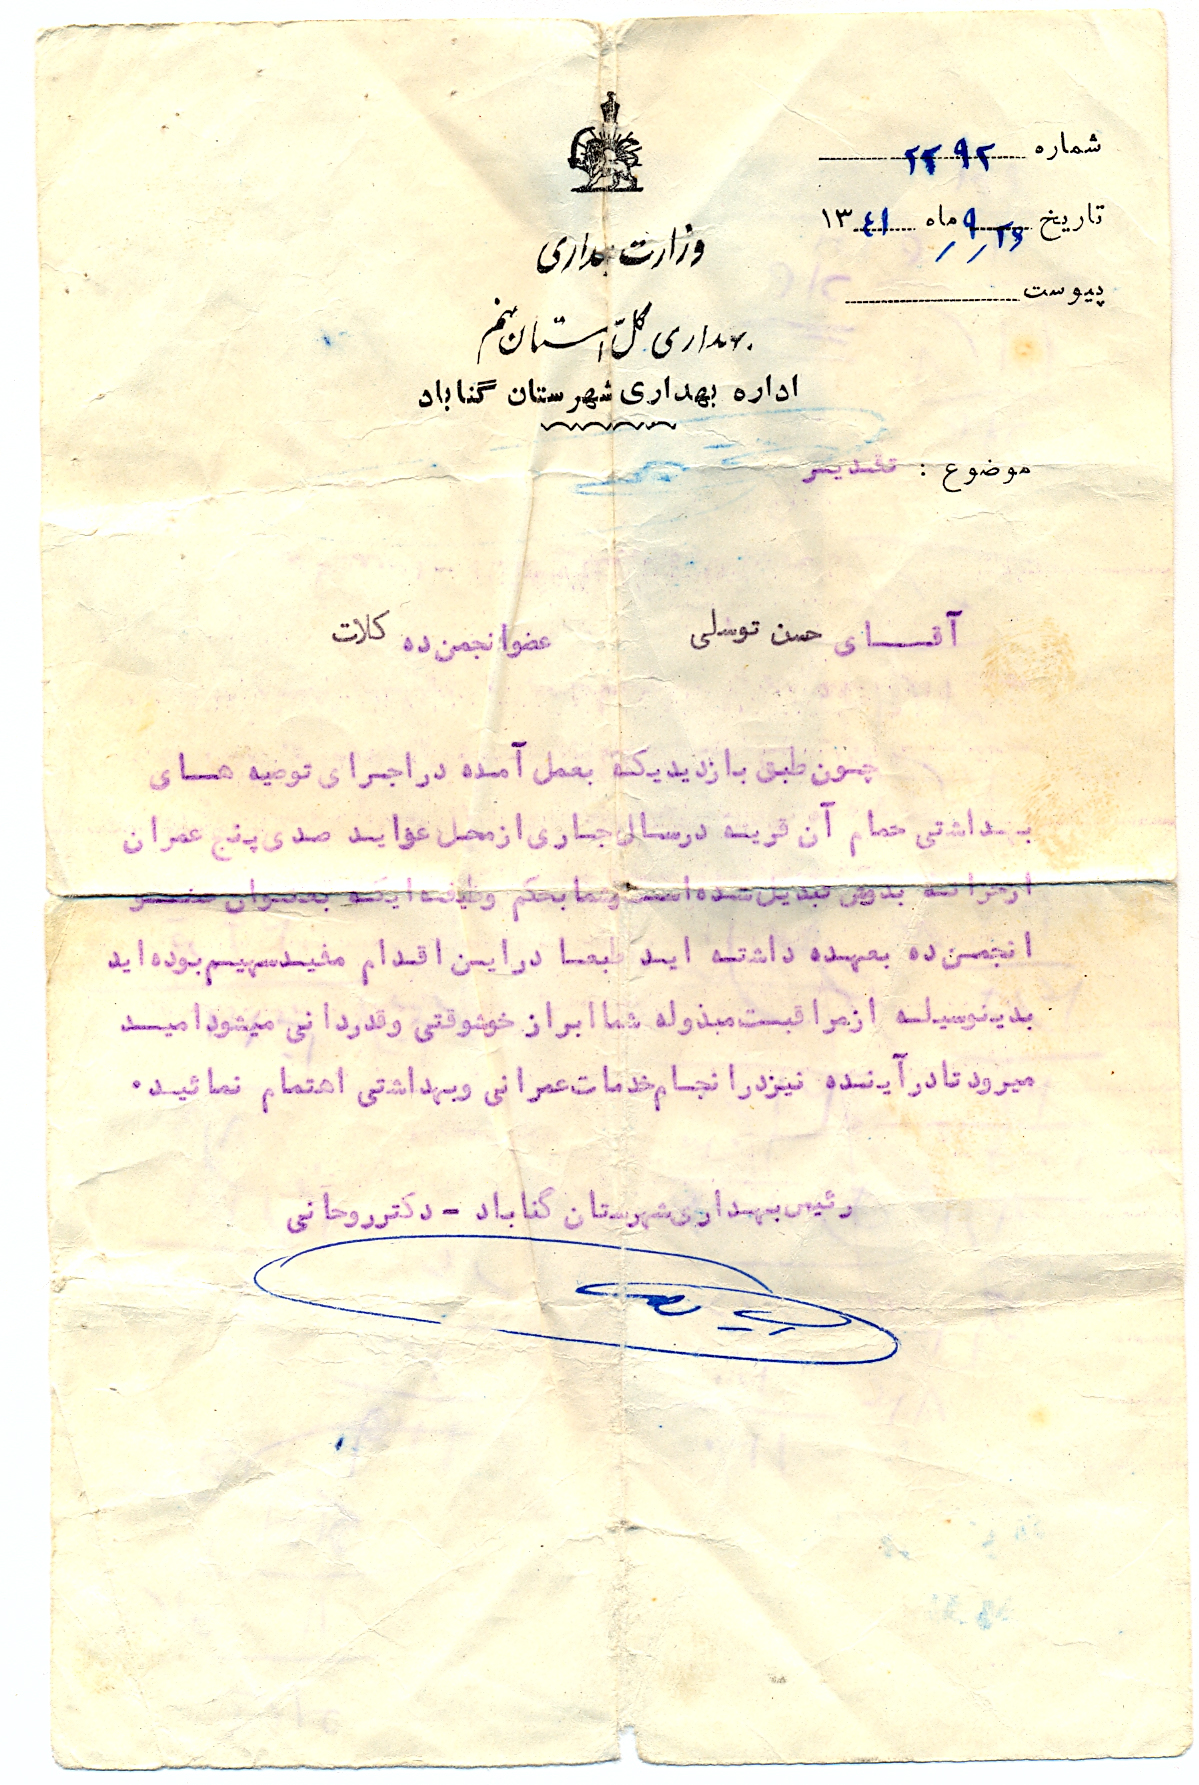 شماره ۲۲۹۲
تاریخ ۲۶/۹/ ماه ۱۳۴۱
پیوست
وزارت بهداری
بهداری کل استان نهم
اداره بهداری شهرستان گناباد
موضوع : تقدیر
آقای حسن توسلی عضو انجمن ده کلات
چون طبق بازدیدیکه بعمل آمده در اجرای توصیه های
بهداشتی حمام آن قریه در سال جاری از محل عواید صدی پنج عمران
از خزانه بدوش تبدیل شده است و شما بحکم وظیفه ایکه بعنوان عضو
انجمن ده بعهده داشته اید طبعا در این اقدام مفید سهیم بوده اید
بدینوسیله از مراقبت مبذوله شما ابراز خوشوقتی و قدردانی میشود امید
میرود تا در آینده نیز در انجام خدمات عمرانی و بهداشتی اهتمام نمائید.
رئیس بهداری شهرستان گناباد - دکتر روحانی